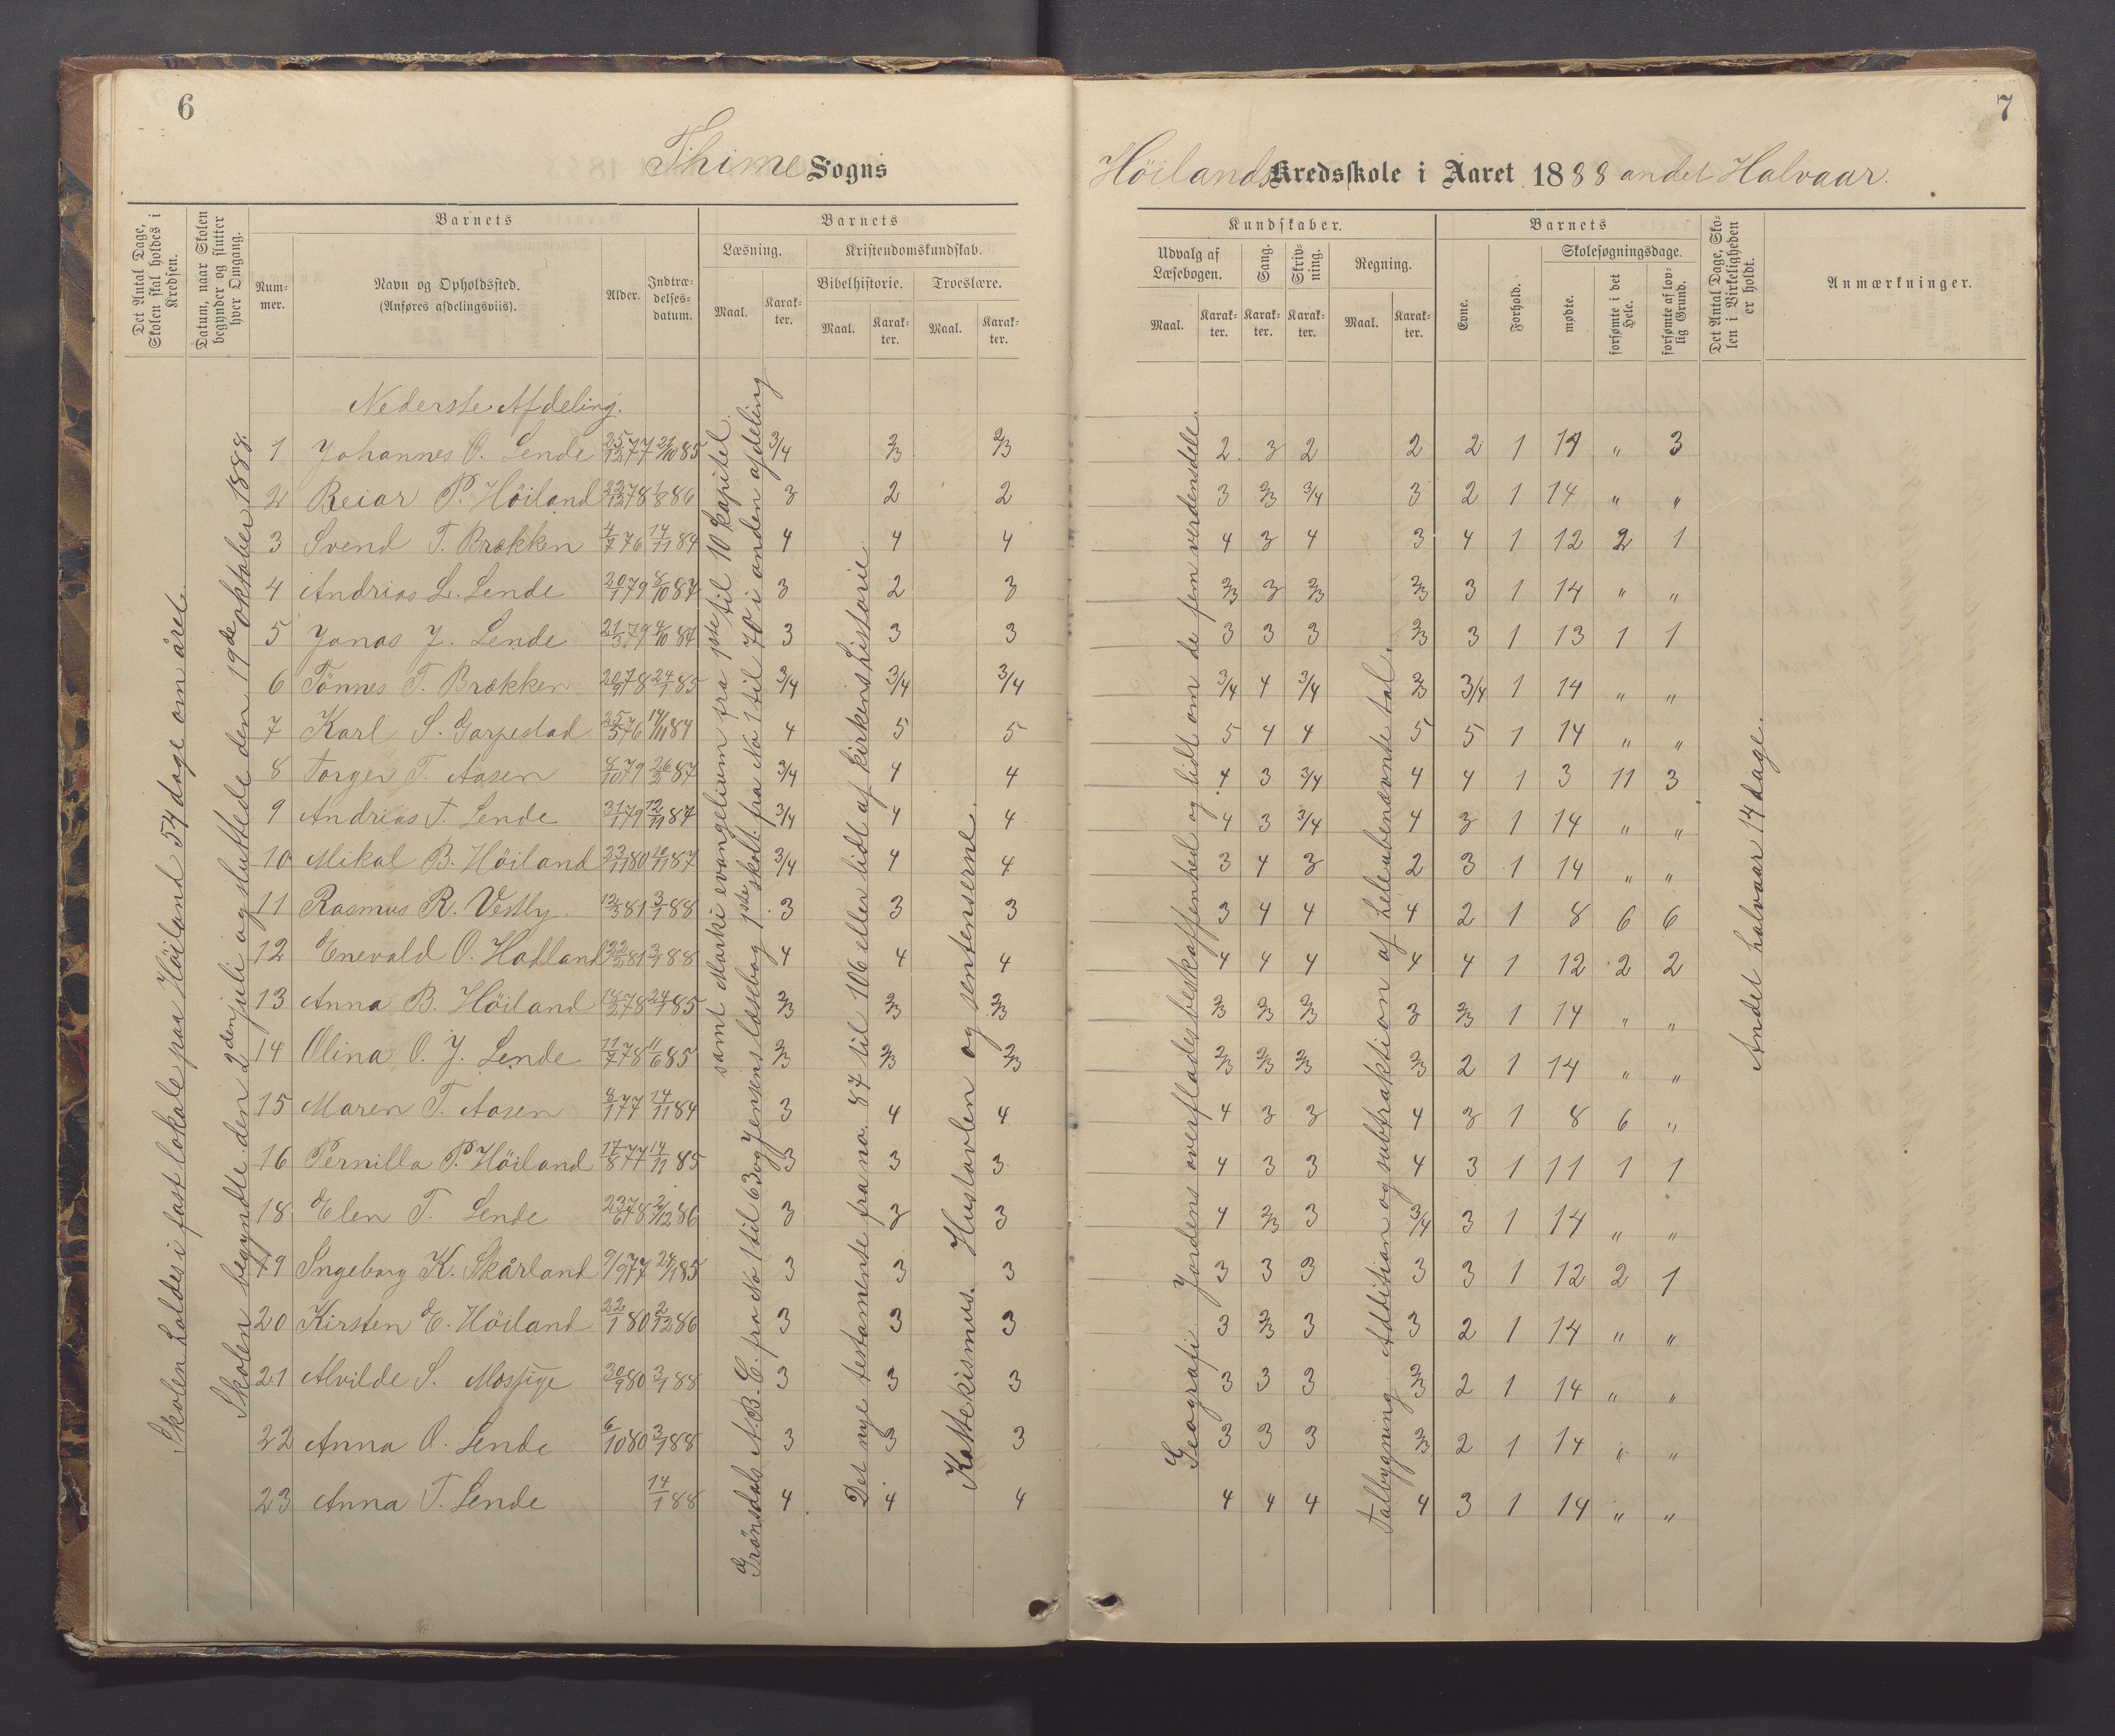 6
Thime Sogns
Det Antal Dage, Skolen skal holdes i Kredsen.
Datum, naar Skolen begynder og slutter hver Omgang.
Barnets
Nummer.
Navn og Opholdssted. (Anføres afdelingsviis).
Alder.
Indtrædelsesdatum.
Barnets
Læsning.
Kristendomskundskab.
Bibelhistorie.
Troeslære.
Maal. Karakter. Maal. Karakter. Maal. Karakter.
Skolen holdes i fast lokale paa Höiland 54 dage om året.
Skolen begyndte den 2den juli og sluttede den 19de oktober 1888.
Grönsdals A.B.C. fra No 1 til 63 og Jensens læsebog 1ste skolt. fra No 1 til 70 i anden afdeling
samt Marki evangelium fra 1ste til 10 kapitel.
Det nye testamente fra no. 87 til 106 eller lidt af kirkens historie.
Kattekismus. Hustavlen og sentenserne.
Nederste Afdeling.
1 Johannes O. Lende 25/12 77 21/10 85 3/4 2/3 2/3
2 Reiar P. Höiland 22/12 78 1/8 86 3 2 2
3 Svend T. Brækken 4/7 76 14/11 84 4 4 4
4 Andrias L. Lende 20/1 79 8/10 87 3 2 3
5 Jonas J. Lende 21/3 79 4/10 84 3 3 3
6 Tönnes T. Brækken 20/9 78 24/1 85 3/4 3/4 3/4
7 Karl S. Garpestad 25/5 76 14/11 84 4 5 5
8 Torger T. Aasen 8/10 79 26/2 87 3/4 4 4
9 Andrias T. Lende 31/1 79 12/11 87 3/4 4 4
10 Mikal B. Höiland 23/11 80 10/11 87 3/4 4 4
11 Rasmus R. Vestly 12/3 81 3/1 88 3 3 3
12 Enevald O. Hadland 22/2 81 3/1 88 4 4 4
13 Anna B. Höiland 18/2 78 24/1 85 2/3 2/3 2/3
14 Olina O. J. Lende 11/7 78 11/6 85 2/3 2/3 2/3
15 Maren T. Aasen 8/1 77 14/11 84 3 4 4
16 Pernilla P. Höiland 17/8 77 14/11 85 3 3 3
18 Elen T. Lende 23/6 78 2/12 86 3 3 3
19 Ingeborg K. Skårland 9/9 77 24/1 85 3 3 3
20 Kirsten E. Höiland 22/1 80 2/12 86 3 3 3
21 Alvilde S. Mossige 30/9 80 3/1 88 3 3 3
22 Anna O. Lende 6/10 80 3/1 88 3 3 3
23 Anna T. Lende 14/1 88 4 4 4
7
Höilands Kredsskole i Aaret 1888 andet Halvaar.
Kundskaber.
Udvalg af Læsebogen.
Sang.
Skrivning.
Regning.
Maal. Karakter. Karakter. Karakter. Maal. Karakter.
Barnets
Evne.
Forhold.
Skolesøgningsdage.
mødte.
forsømte i det Hele.
forsømte af lovlig Grund.
Det Antal Dage, Skolen i Virkeligheden er holdt.
Anmærkninger.
Geografi. Jordens overfladesbeskaffenhed og lidt om de fem verdensdele.
Talbygning. Addition og subtraktion af hele ubenævnte tal.
Andet halvaar 14 dage.
2 3 2 2 2 1 14 " 3
3 2/3 3/4 3 2 1 14 " "
4 3 4 3 4 1 12 2 1
2/3 3 2/3 2/3 3 1 14 " "
3 3 3 2/3 3 1 13 1 1
3/4 4 3/4 2/3 3/4 1 14 " "
5 4 4 5 5 1 14 " "
4 3 3/4 4 4 1 3 11 3
4 3 3/4 4 3 1 14 " "
3 4 3 2 3 1 14 " "
3 4 4 4 2 1 8 6 6
4 4 4 4 4 1 12 2 2
2/3 2/3 2/3 3 2/3 1 14 " "
2/3 2/3 2/3 2/3 2 1 14 " "
4 3 3 4 3 1 8 6 "
4 3 3 4 3 1 11 1 1
4 2/3 3 3/4 3 1 14 " "
3 3 3 3 3 1 12 2 1
3 2/3 3 3 2 1 14 " "
3 3 3 2/3 2 1 14 " "
3 3 3 2/3 2 1 14 " "
4 4 4 4 3 1 14 " "